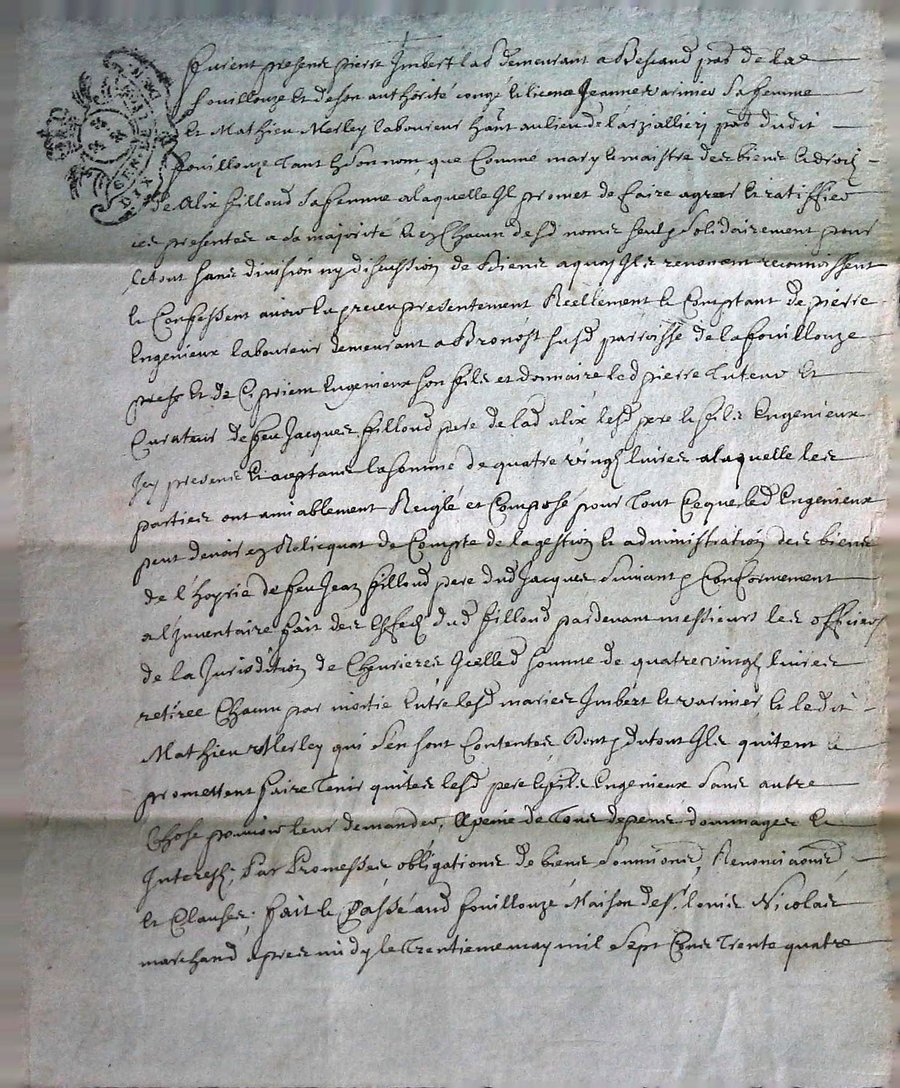 GEN DIX
Furent presens pierre Imbert lab demeurant a Bescaud par de la
fouillouze et de son authorité congé et licence Jeanne varinier sa femme
et Mathieu Merley laboureur ha͞nt au lieu de larziallieri par dudit
fouillouze tant en son nom, que comme mary et maistre des biens et droitz
de Alix filloud sa femme a laquelle Il promet de faire agreer et ratiffier
ces presentes a sa majorité et en chacun desd noms seul & solidairement pour
le tout sans division ny discussion de biens a quoy Ils renoncent reconnoissent
et confessent avoir eu & receu presentement Reellement et comptant de pierre
Engenieux laboureur demeurant a Bronost susd parroisse de la fouillouze
prest et de Cipriem Engenieux son fils et donnaire led pierre tuteur et
Curateur de feu Jacques filloud pere de lad alix lesd pere et fils Engenieux
Icy presens et aceptans la somme de quatre vingtz livres a laquelle les
parties ont amiablement Reiglé et Composé pour tout ce que led Engenieux
peut devoir en Relicquat de Compte de la gestion et administration des biens
de l'hoyrie de feu Jean filloud pere dud Jacques suivant & conformement
a l'Inventaire fait des effectz dud filloud pardevant messieurs les officiers
de la Jurisdition de Chevrieres Icelled somme de quatre vingtz livres
retirée chacun par moitie entre lesd mariés Imbert et varinier et ledit
Mathieu Merley qui s'en sont contentés dont & du tout Ils quitent et
promettent faire tenir quites lesd pere et fils Engenieux sans autre
chose pouvoir leur demander, a peine de tous depens dommages et
Interestz, Par Promesses, obligations de biens soumions, Renonciaons
et Clauses; fait et Passé aud fouillouze Maison de sr. louis Nicolas
marchand apres midy le trentieme may mil sept cens trente quatre